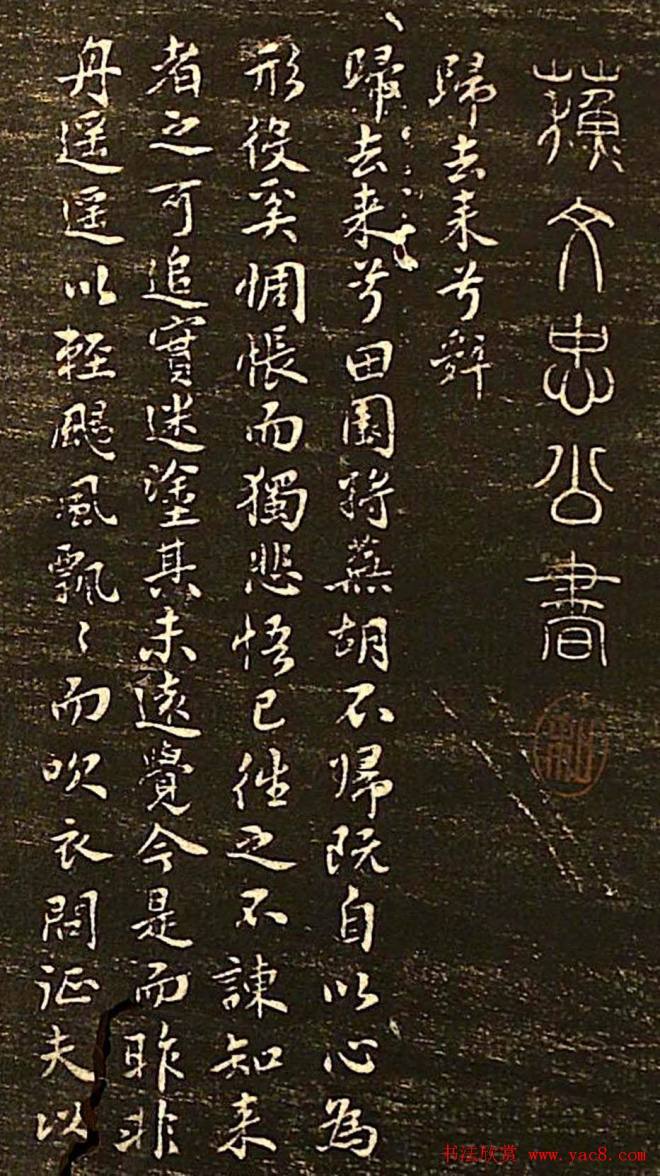 蘇文忠公書
歸去来兮辭
歸去来兮田園將蕪胡不歸既自以心為
形役奚惆悵而獨悲悟已往之不諫知来
者之可追實迷塗其未遠覺今是而昨非
舟遥遥以輕颺風飄〻而吹衣問征夫以
书法欣赏 www.yac8.com